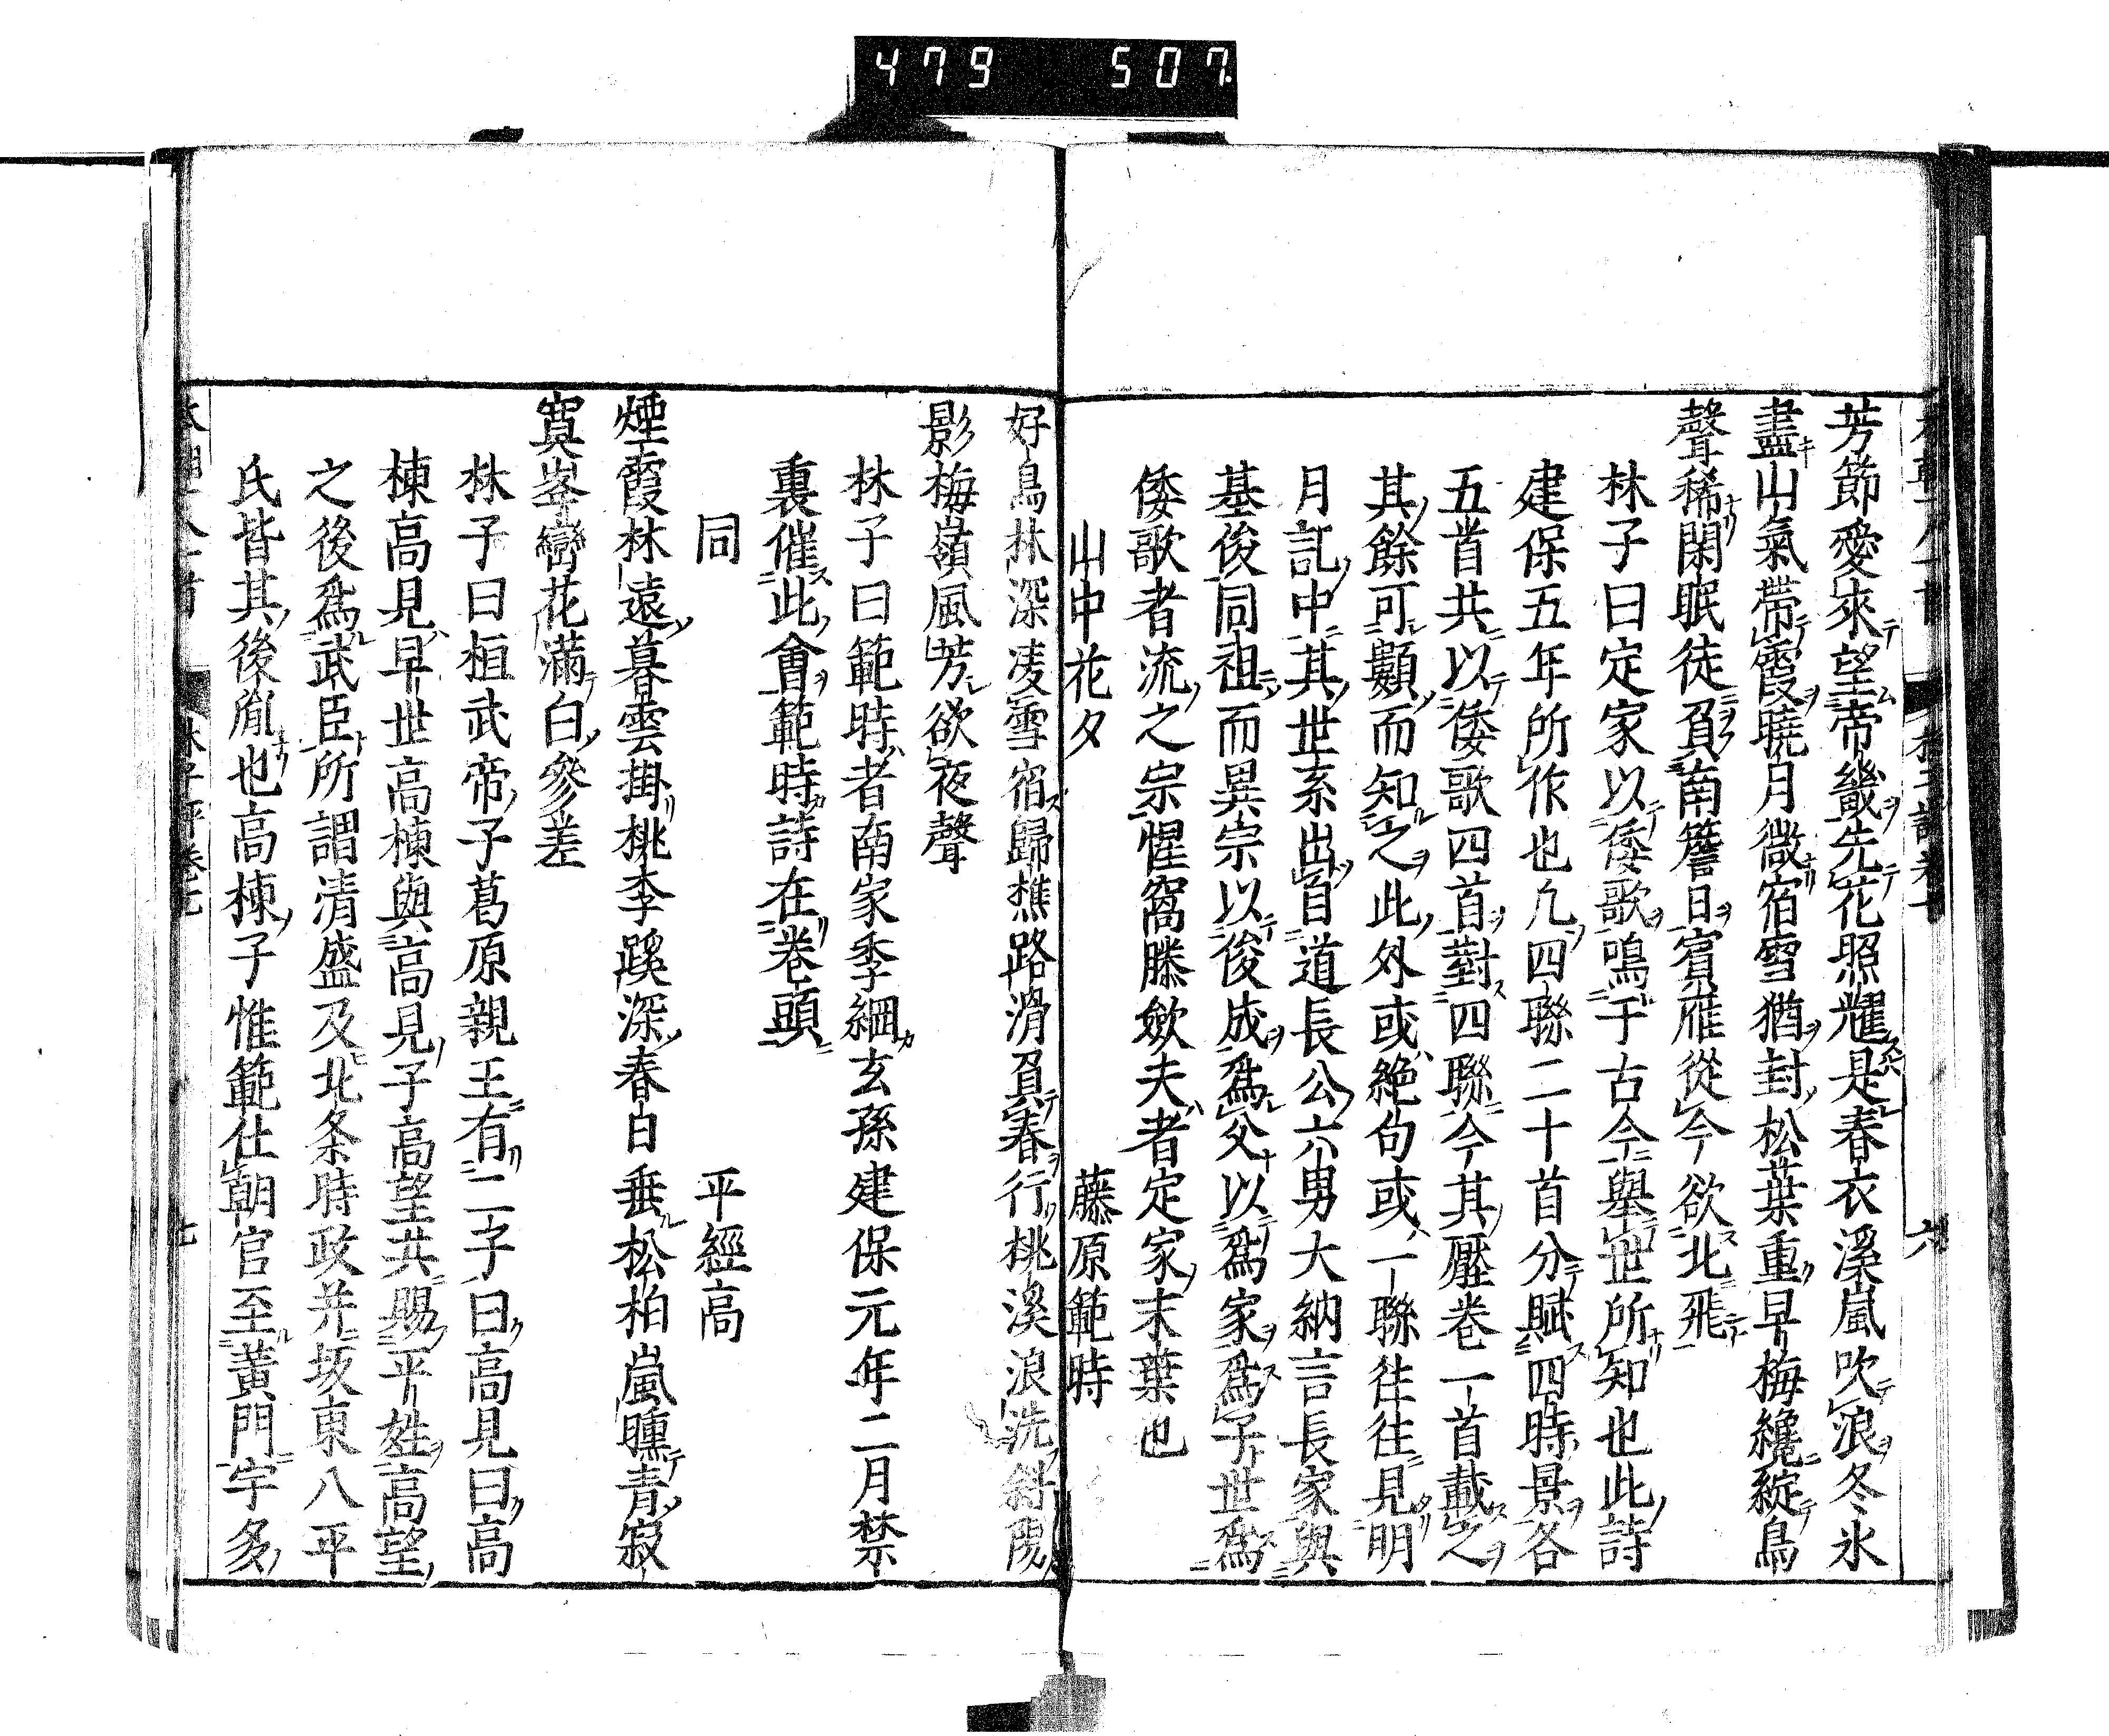 479 507
芳節愛來望帝畿先花照耀是春衣溪嵐吹浪冬氷
盡山氣帶霞曉月微宿雪猶封松葉重早梅纔綻鳥
聲稀閑眠徒負南簷日賓雁從今欲北飛
林子曰定家以倭歌鳴于古今舉世所知也此詩
建保五年所作也凢四聯二十首分賦四時景各
五首共以倭歌四首對四聯今其壓卷一首載之
其餘可類而知之此外或絶句或一聯往往見明
月記中其世系出自道長公六男大納言長家與
基俊同祖而異宗以俊成爲父以爲家爲子世爲
倭歌者流之宗惺窩滕斂夫者定家末葉也
山中花夕 藤原範時
好鳥林深凌雪宿歸樵路滑負春行桃溪浪洗斜陽
影梅嶺風芳欲夜聲
林子曰範時者南家季綱玄孫建保元年二月禁
裏催此會範時詩在卷頭
同 平經高
煙霞林遠暮雲掛桃李蹊深春日垂松柏嵐曛青寂
寞峯巒花滿白參差
林子曰桓武帝子葛原親王有二子曰高見曰高
棟高見早世高棟與高見子高望共賜平姓高望
之後爲武臣所謂清盛及北条時政并坂東八平
氏皆其後胤也高棟子惟範仕朝官至黃門宇多